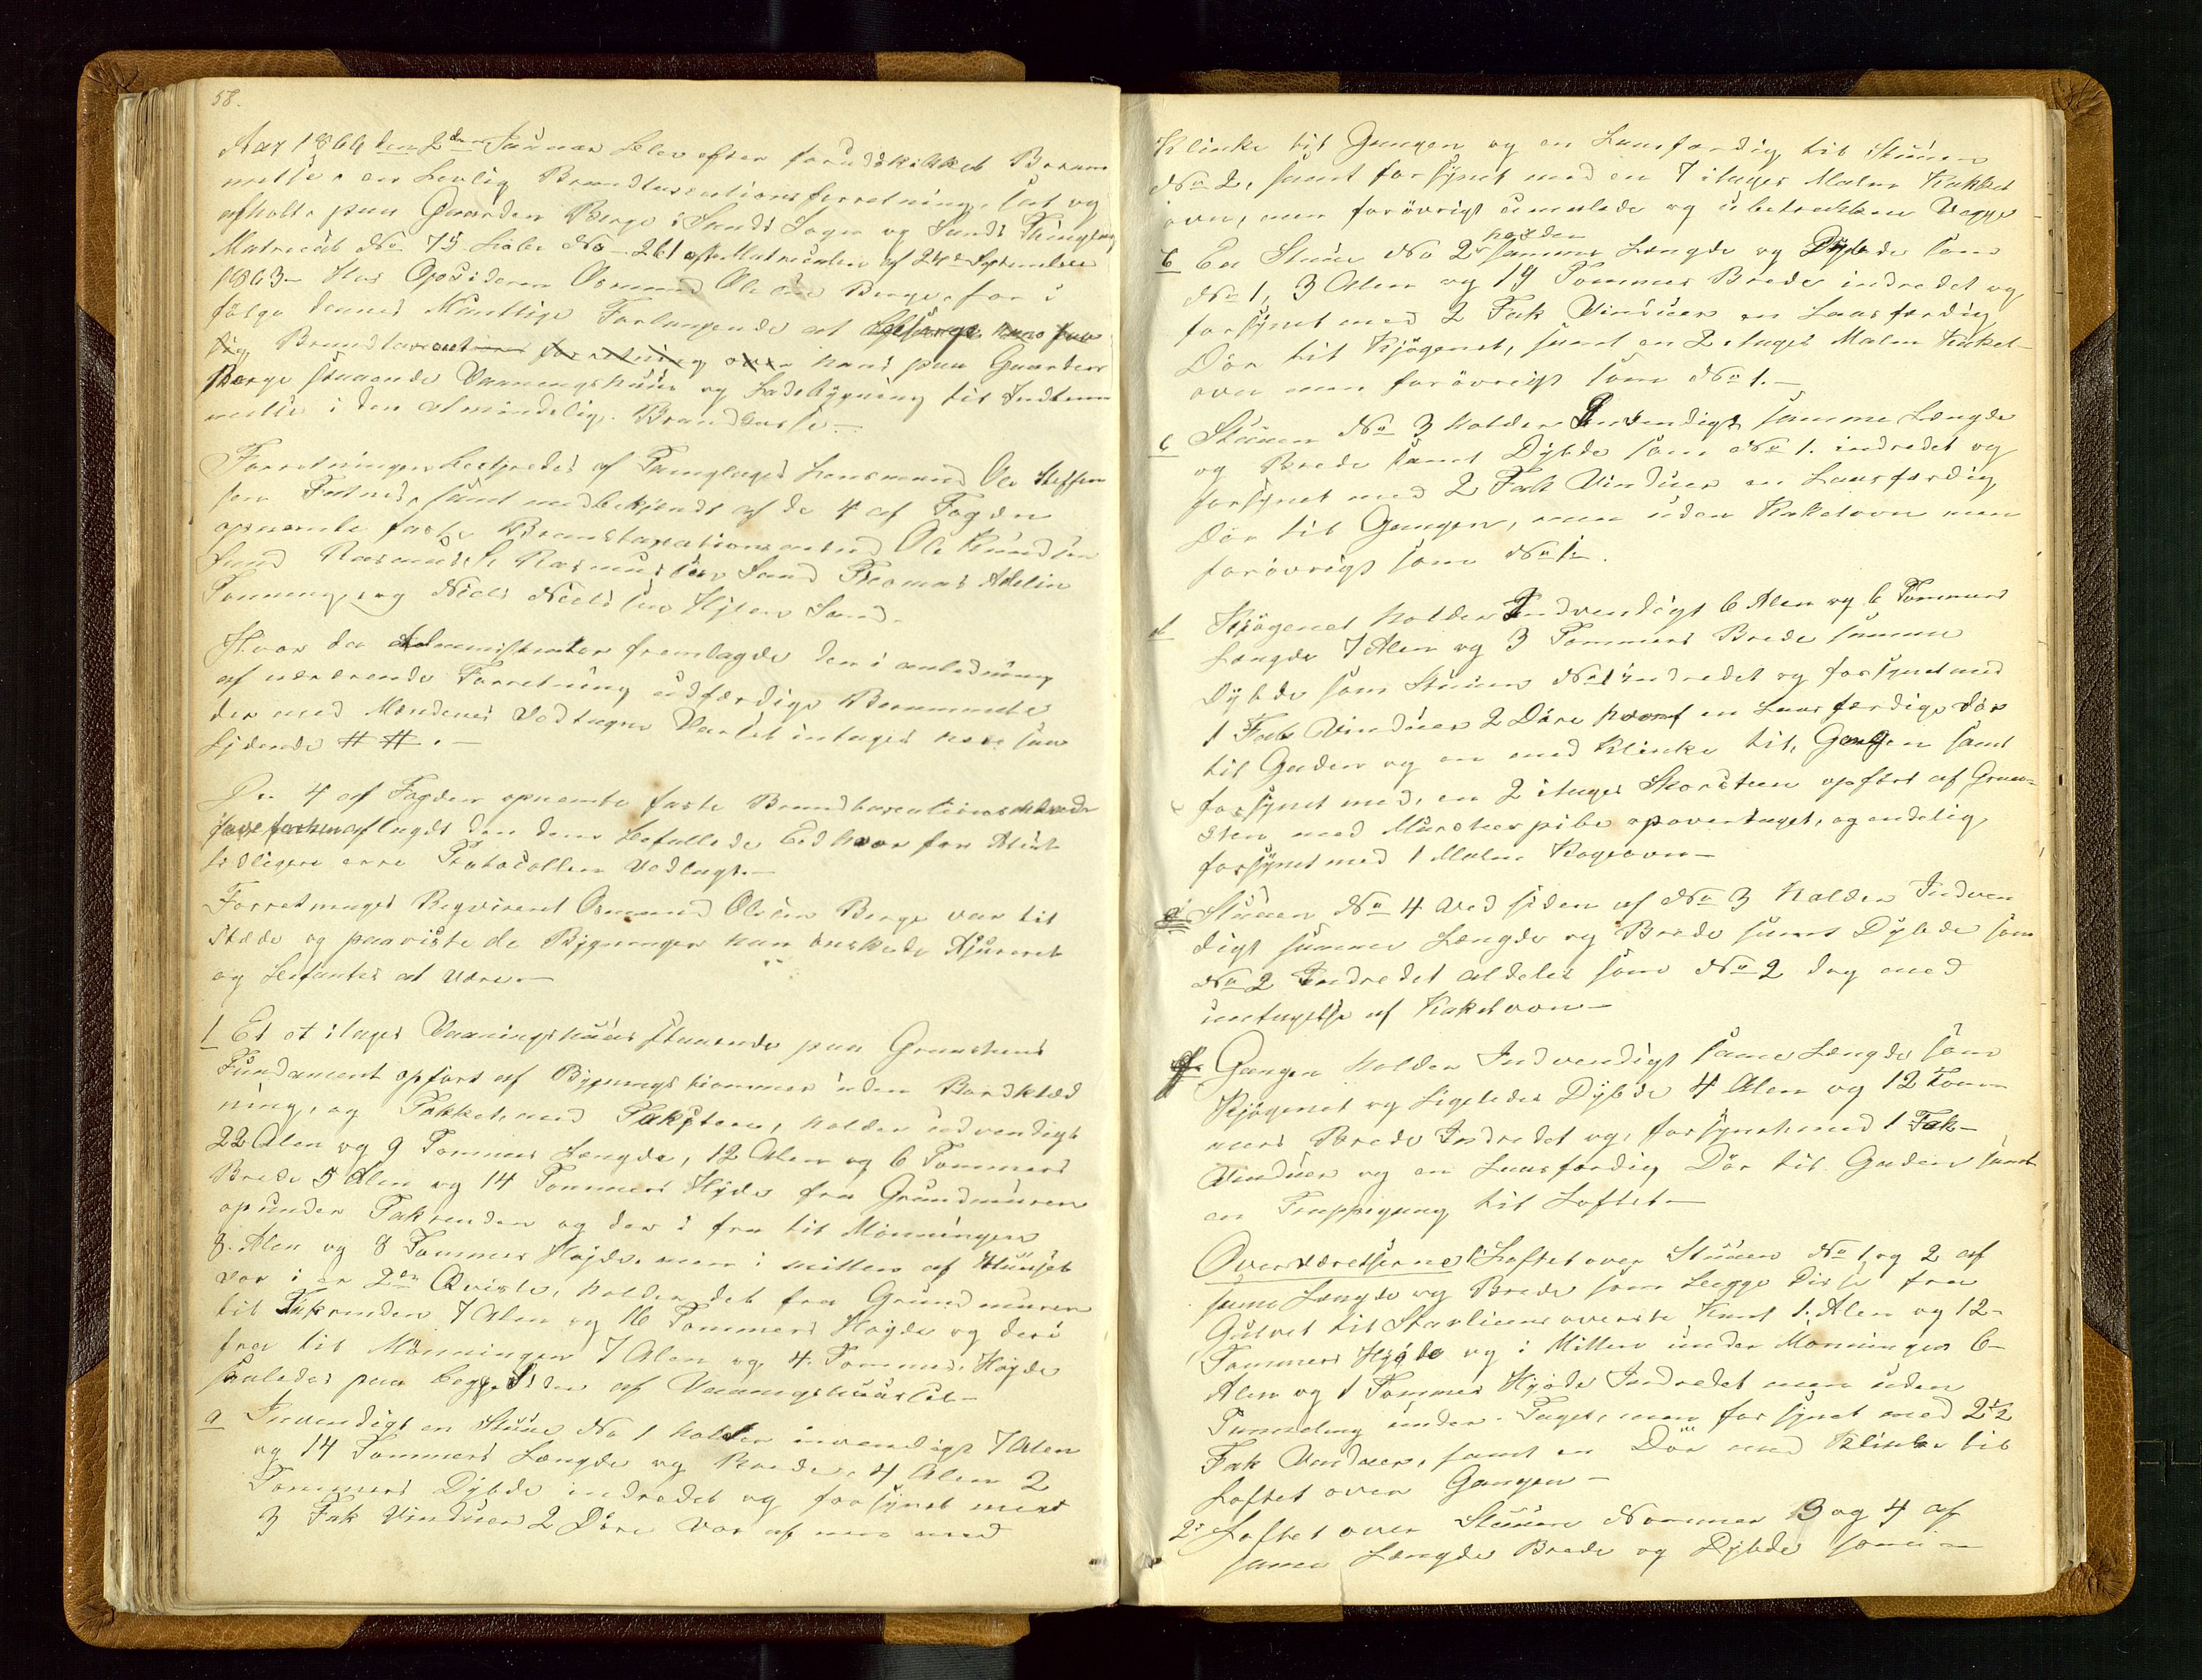 58.
Aar 1864 den 2den Januar blev efter forudskikket Beram
melse en Lovlig Brandtaxationsforretning sat og
afholt paa Gaarden Berge i Sands Sogn og Sands Thinglag
Matricul No 75 Løbe No 261 efter Matriculen af 24de September
1863 hos Opsideren Osmund Olsen Berge, for i
følge dennes Mundtlige Forlangende at
Brandtaxations forretning over hans paa Gaarden
Berge staaende Vaaningshuus og Ladebygning til Indtem
melse i den almindelige Brandkasse.—
Forretningen bestyredes af Tinglagets Lensmand Ole Steffen
sen Fatnes, samt medbekjendt af de 4 af Fogden
opnævnte faste Brandtaxationsmænd Ole Knudsen
Sand Rasmus S. Rasmussen Sand Thomas Adelin
Tonning og Niels Nielsen Hylen Sand.
Hvor da Administrator fremlagde den i anledning
af nærværende Forretning udfærdige Berammelse
der med Mændenes Vedtagne Varsel intages her saa
lydende # # .—
De 4 af Fogden opnævnte faste Brandtaxationsmænd
aflagdt den dem befallede Ed hvorfor Attest
tidligere ere Protocollen Vedlagt.—
Forretninges Reqvirent Osmund Olsen Berge var til
stæde og paaviste de Bygninger han ønskede Assureret
og befantes at være.—
1 Et et etages Vaaningshuus staaende paa Graastens
Fundament opført af Bygningstømmer uden Bordklæd
ning, og Takket med Taksteen, holder udvendigt
22 Alen og 9 Tommer Længde, 12 Alen og 6 Tommers
Brede 5 Alen og 14 Tommers Højde fra Grundmuren
op under Takrenden og der i fra til Mønningen
8 Alen og 8 Tommer Højde, men i mitten af Huuset
vor i er 2de Qviste, holder det fra Grundmuren
til Takrenden 7 Alen og 16 Tommers Højde og deri
fra til Mønningen 7 Alen og 4 Tommers Højde
saaledes paa begge Siden af Vaaningshuuset.—
a Invendigt en Stue No 1 holder invendigt 7 Alen
og 14 Tommers Længde og Brede, 4 Alen 2
Tommers Dybde indredet og forsynet med
3 Fak Vinduer 2 Døre vor af ene med
Klinke til Gangen og en Laasfærdig til Stuen
No 2, samt forsynet med en 7 etages Malm Kakkel
ovn, men forøvrigt umalede og ubetrekken Vegge
b En Stue No 2 holder samme Længde og Dybde som
No 1, 3 Alen og 19 Tommer Brede indredet og
forsynet med 2 Fak Vinduer en Laasfærdig
Dør til Kjøgenet, samt en 2 etages Malm Kakel-
ovn men forøvrigt som No 1.—
c Stuen No 3 holder Indvendigt samme Længde
og Brede samt Dybde som No 1. indredet og
forsynet med 2 Fak Vinduer en Laasfærdig
Dør til Gangen, men uden Kakelovn men
forøvrigt som No 1.
d Kjøgenet holder Indvendigt 6 Alen og 6 Tommers
Længde 7 Alen og 3 Tommers Brede samme
Dybde som Stuen No 1 indredet og forsynet med
1 Fak Vinduer 2 Døre hvoraf en Laasfærdige dør
til Gaden og en med Klinke til Gangen samt
forsynet med, en 2 etages Skorsteen opført af Graa-
sten med Mursteespibe op over taget, og endelig
forsynet med 1 Malm Kogeovn—
e Stuen No 4 ved siden af No 3 holder Indven
digt samme Længde og Brede samt Dybde som
No 2 Indredet aldeles som No 2 dog med
untagelse af Kakelovn—
f. Gangen holder Indvendigt same Længde som
Kjøgenet og ligeledes Dybde 4 Alen og 12 Tom-
mers Brede Indredet og forsynet med 1 Fak-
Vinduer og en Laasfærdig Dør til Gaden samt
en Trappegang til Loftet—
Overværelserne 1: Loftet over Stuen No 1 og 2 af
same Længde og Brede som begge disse fra
Gulvet til Stavliens øverste Kant 1. Alen og 12-
Tommers Højde og i Mitten under Mønningen 6-
Alen og 1 Tommes Højde Indredet men uden
Panneling under Taget, men forsynet med 2 1/2
Fak Vinduer, samt en Dør med Klinke til
Loftet over Gangen—
2: Loftet over Stuen Nommer 3 og 4 af
same Længde Brede og Dybde som i